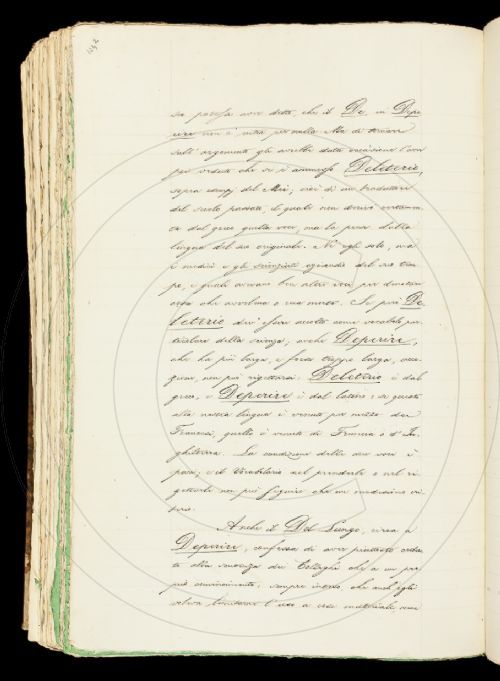 sa potesse aver detto, che il De, in Depe
rire non è entra per nulla. Ma di tornare
sull'argomento gli avrebbe data occasione l'aver
poi veduto che vi è ammesso Deleterio,
sopra esempj del Mei, cioè di un traduttore
del secolo passato, il quale non derivò
dal greco quella voce, ma la prese dalla
lingua del suo originale. Nè egli solo, ma
i medici e gli scienziati eziandio del suo tem
po, i quali avevano ben altre voci per denotare
cosa che avvelena o rea morte. Se poi De
leterio dev'essere accolto come vocabolo par
ticolare della scienza, anche Deperire,
che ha più larga, e forse troppo larga,
non può rigettarsi. Deleterio è dal
greco, e Deperire è dal latino: se questo
alla nostra lingua è venuto per mezzo dei
Francesi, quello è venuto di Francia o d'In
ghilterra. La condizione delle due voci è
pari; e il Vocabolario nel prenderle o nel ri
gettarle non può seguire che un medesimo cri
terio.
Anche il Del Lungo, circa a
Deperire, confessa di aver piuttosto
alla sentenza dei Colleghi che a un pro
prio convincimento; sempre inteso che anch'egli
voleva limitarne l'uso a cose materiali, come